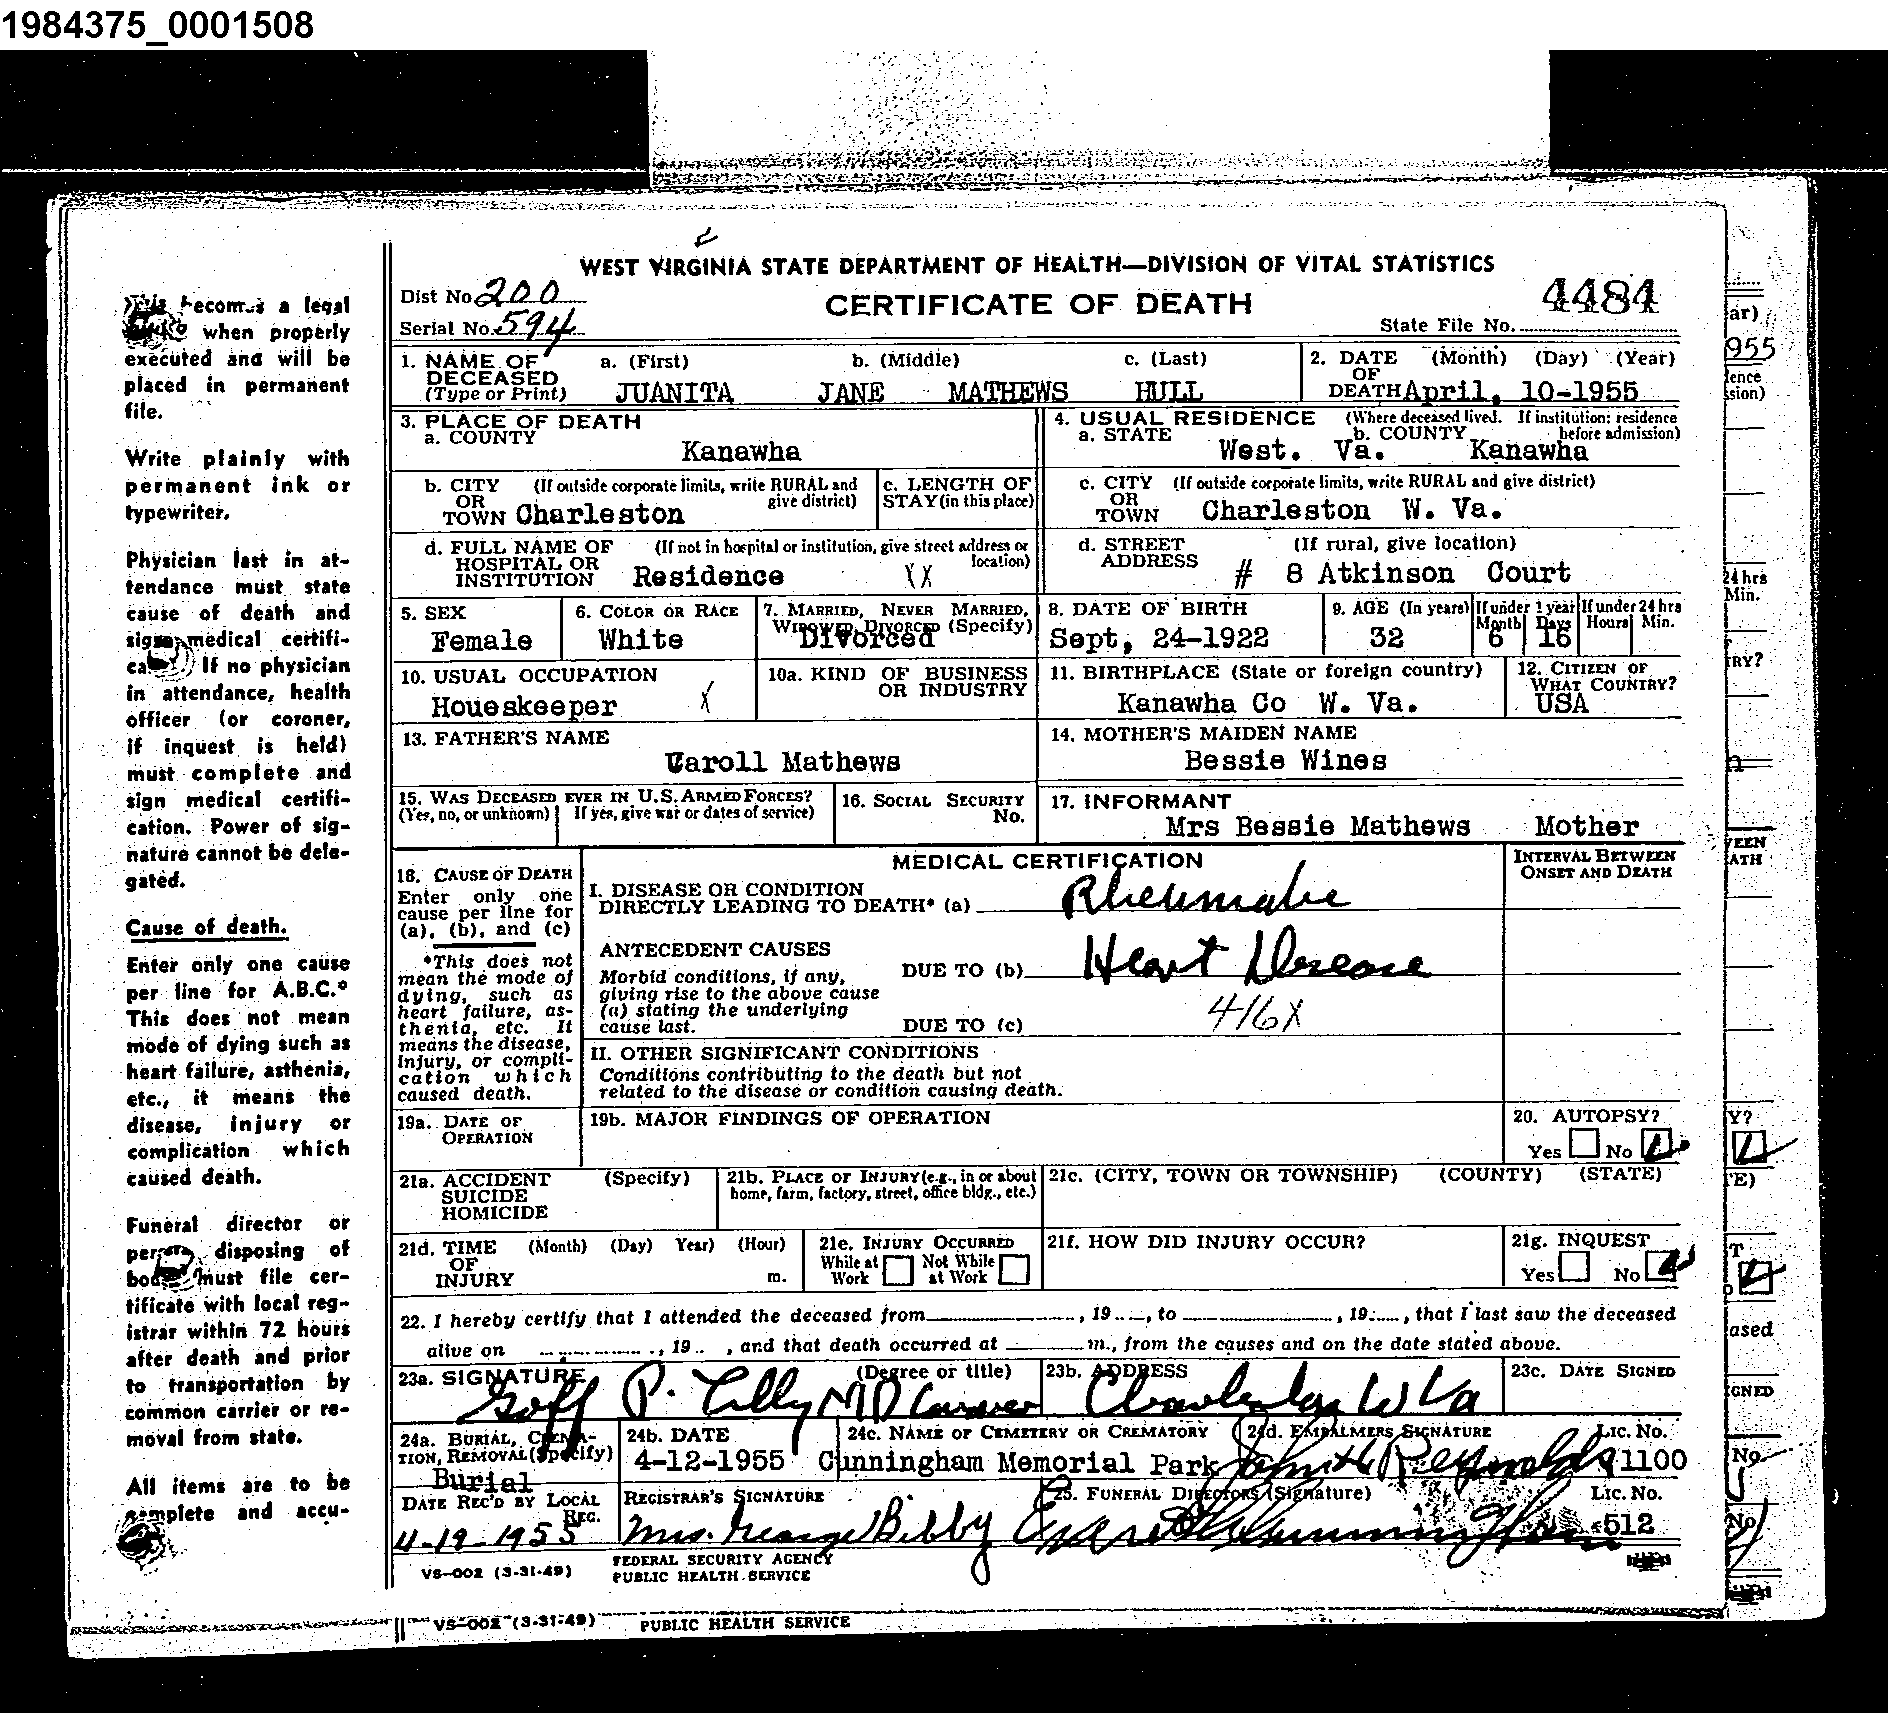 1984375_0001508
WEST VIRGINIA STATE DEPARTMENT OF HEALTH—DIVISION OF VITAL STATISTICS
Dist No. 200
CERTIFICATE OF DEATH
4484
Serial No. 594
State File No.
1. NAME OF DECEASED (Type or Print)
a. (First) b. (Middle) c. (Last)
JUANITA JANE MATHEWS HULL
2. DATE OF DEATH (Month) (Day) (Year)
April, 10-1955
3. PLACE OF DEATH
a. COUNTY
Kanawha
4. USUAL RESIDENCE (Where deceased lived. If institution: residence before admission)
a. STATE West. Va. b. COUNTY Kanawha
b. CITY OR TOWN (If outside corporate limits, write RURAL and give district)
Charleston
c. LENGTH OF STAY (in this place)
c. CITY OR TOWN (If outside corporate limits, write RURAL and give district)
Charleston W. Va.
d. FULL NAME OF HOSPITAL OR INSTITUTION (If not in hospital or institution, give street address or location)
Residence XX
d. STREET ADDRESS (If rural, give location)
# 8 Atkinson Court
5. SEX
Female
6. COLOR OR RACE
White
7. MARRIED, NEVER MARRIED, WIDOWED, DIVORCED (Specify)
Divorced
8. DATE OF BIRTH
Sept, 24-1922
9. AGE (In years) If under 1 year If under 24 hrs
Month Days Hours Min.
32 6 16
10. USUAL OCCUPATION
Houeskeeper X
10a. KIND OF BUSINESS OR INDUSTRY
11. BIRTHPLACE (State or foreign country)
Kanawha Co W. Va.
12. CITIZEN OF WHAT COUNTRY?
USA
13. FATHER'S NAME
Caroll Mathews
14. MOTHER'S MAIDEN NAME
Bessie Wines
15. WAS DECEASED EVER IN U.S. ARMED FORCES?
(Yes, no, or unknown) If yes, give war or dates of service)
16. SOCIAL SECURITY No.
17. INFORMANT
Mrs Bessie Mathews Mother
18. CAUSE OF DEATH
Enter only one cause per line for (a), (b), and (c)
*This does not mean the mode of dying, such as heart failure, asthenia, etc. It means the disease, injury, or complication which caused death.
MEDICAL CERTIFICATION
INTERVAL BETWEEN ONSET AND DEATH
I. DISEASE OR CONDITION DIRECTLY LEADING TO DEATH* (a) Rheumatic
ANTECEDENT CAUSES
Morbid conditions, if any, giving rise to the above cause (a) stating the underlying cause last.
DUE TO (b) Heart Disease
DUE TO (c) 416X
II. OTHER SIGNIFICANT CONDITIONS
Conditions contributing to the death but not related to the disease or condition causing death.
19a. DATE OF OPERATION
19b. MAJOR FINDINGS OF OPERATION
20. AUTOPSY?
Yes No
21a. ACCIDENT SUICIDE HOMICIDE (Specify)
21b. PLACE OF INJURY (e.g., in or about home, farm, factory, street, office bldg., etc.)
21c. (CITY, TOWN OR TOWNSHIP) (COUNTY) (STATE)
21d. TIME OF INJURY (Month) (Day) Year) (Hour) m.
21e. INJURY OCCURRED
While at Work Not While at Work
21f. HOW DID INJURY OCCUR?
21g. INQUEST
Yes No
22. I hereby certify that I attended the deceased from , 19 , to , 19 , that I last saw the deceased
alive on , 19 , and that death occurred at m., from the causes and on the date stated above.
23a. SIGNATURE (Degree or title)
Goff P. Lilly MD Coroner
23b. ADDRESS
Charleston W Va
23c. DATE SIGNED
24a. BURIAL, CREMATION, REMOVAL (Specify)
Burial
24b. DATE
4-12-1955
24c. NAME OF CEMETERY OR CREMATORY
Cunningham Memorial Park
24d. EMBALMERS SIGNATURE Lic. No.
Reynolds 1100
DATE REC'D BY LOCAL REG.
4-19-1955
REGISTRAR'S SIGNATURE
Mrs. George Bibby
25. FUNERAL DIRECTORS (Signature) Lic. No.
Cunningham 512
VS-002 (3-31-49)
FEDERAL SECURITY AGENCY
PUBLIC HEALTH SERVICE
VS-002 (3-31-49) PUBLIC HEALTH SERVICE
becomes a legal
when properly
executed and will be
placed in permanent
file.
Write plainly with
permanent ink or
typewriter.
Physician last in at-
tendance must state
cause of death and
sign medical certifi-
If no physician
in attendance, health
officer (or coroner,
if inquest is held)
must complete and
sign medical certifi-
cation. Power of sig-
nature cannot be dele-
gated.
Cause of death.
Enter only one cause
per line for A.B.C.*
This does not mean
mode of dying such as
heart failure, asthenia,
etc., it means the
disease, injury or
complication which
caused death.
Funeral director or
person disposing of
body must file cer-
tificate with local reg-
istrar within 72 hours
after death and prior
to transportation by
common carrier or re-
moval from state.
All items are to be
complete and accu-